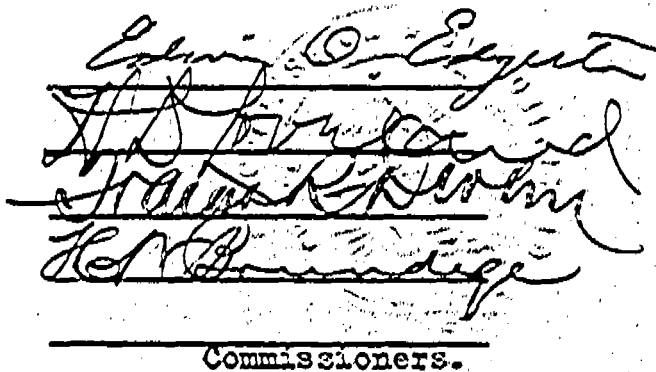 Edwin O. Edgerton
H D Loveland
Frank R. Devlin
H. D. Brundige
Commissioners.